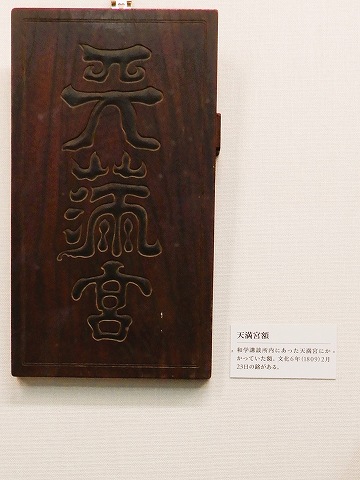 天満宮
天満宮額
和学講談所内にあった天満宮にか
かっていた額。文化6年(1809)2月
23日の銘がある。